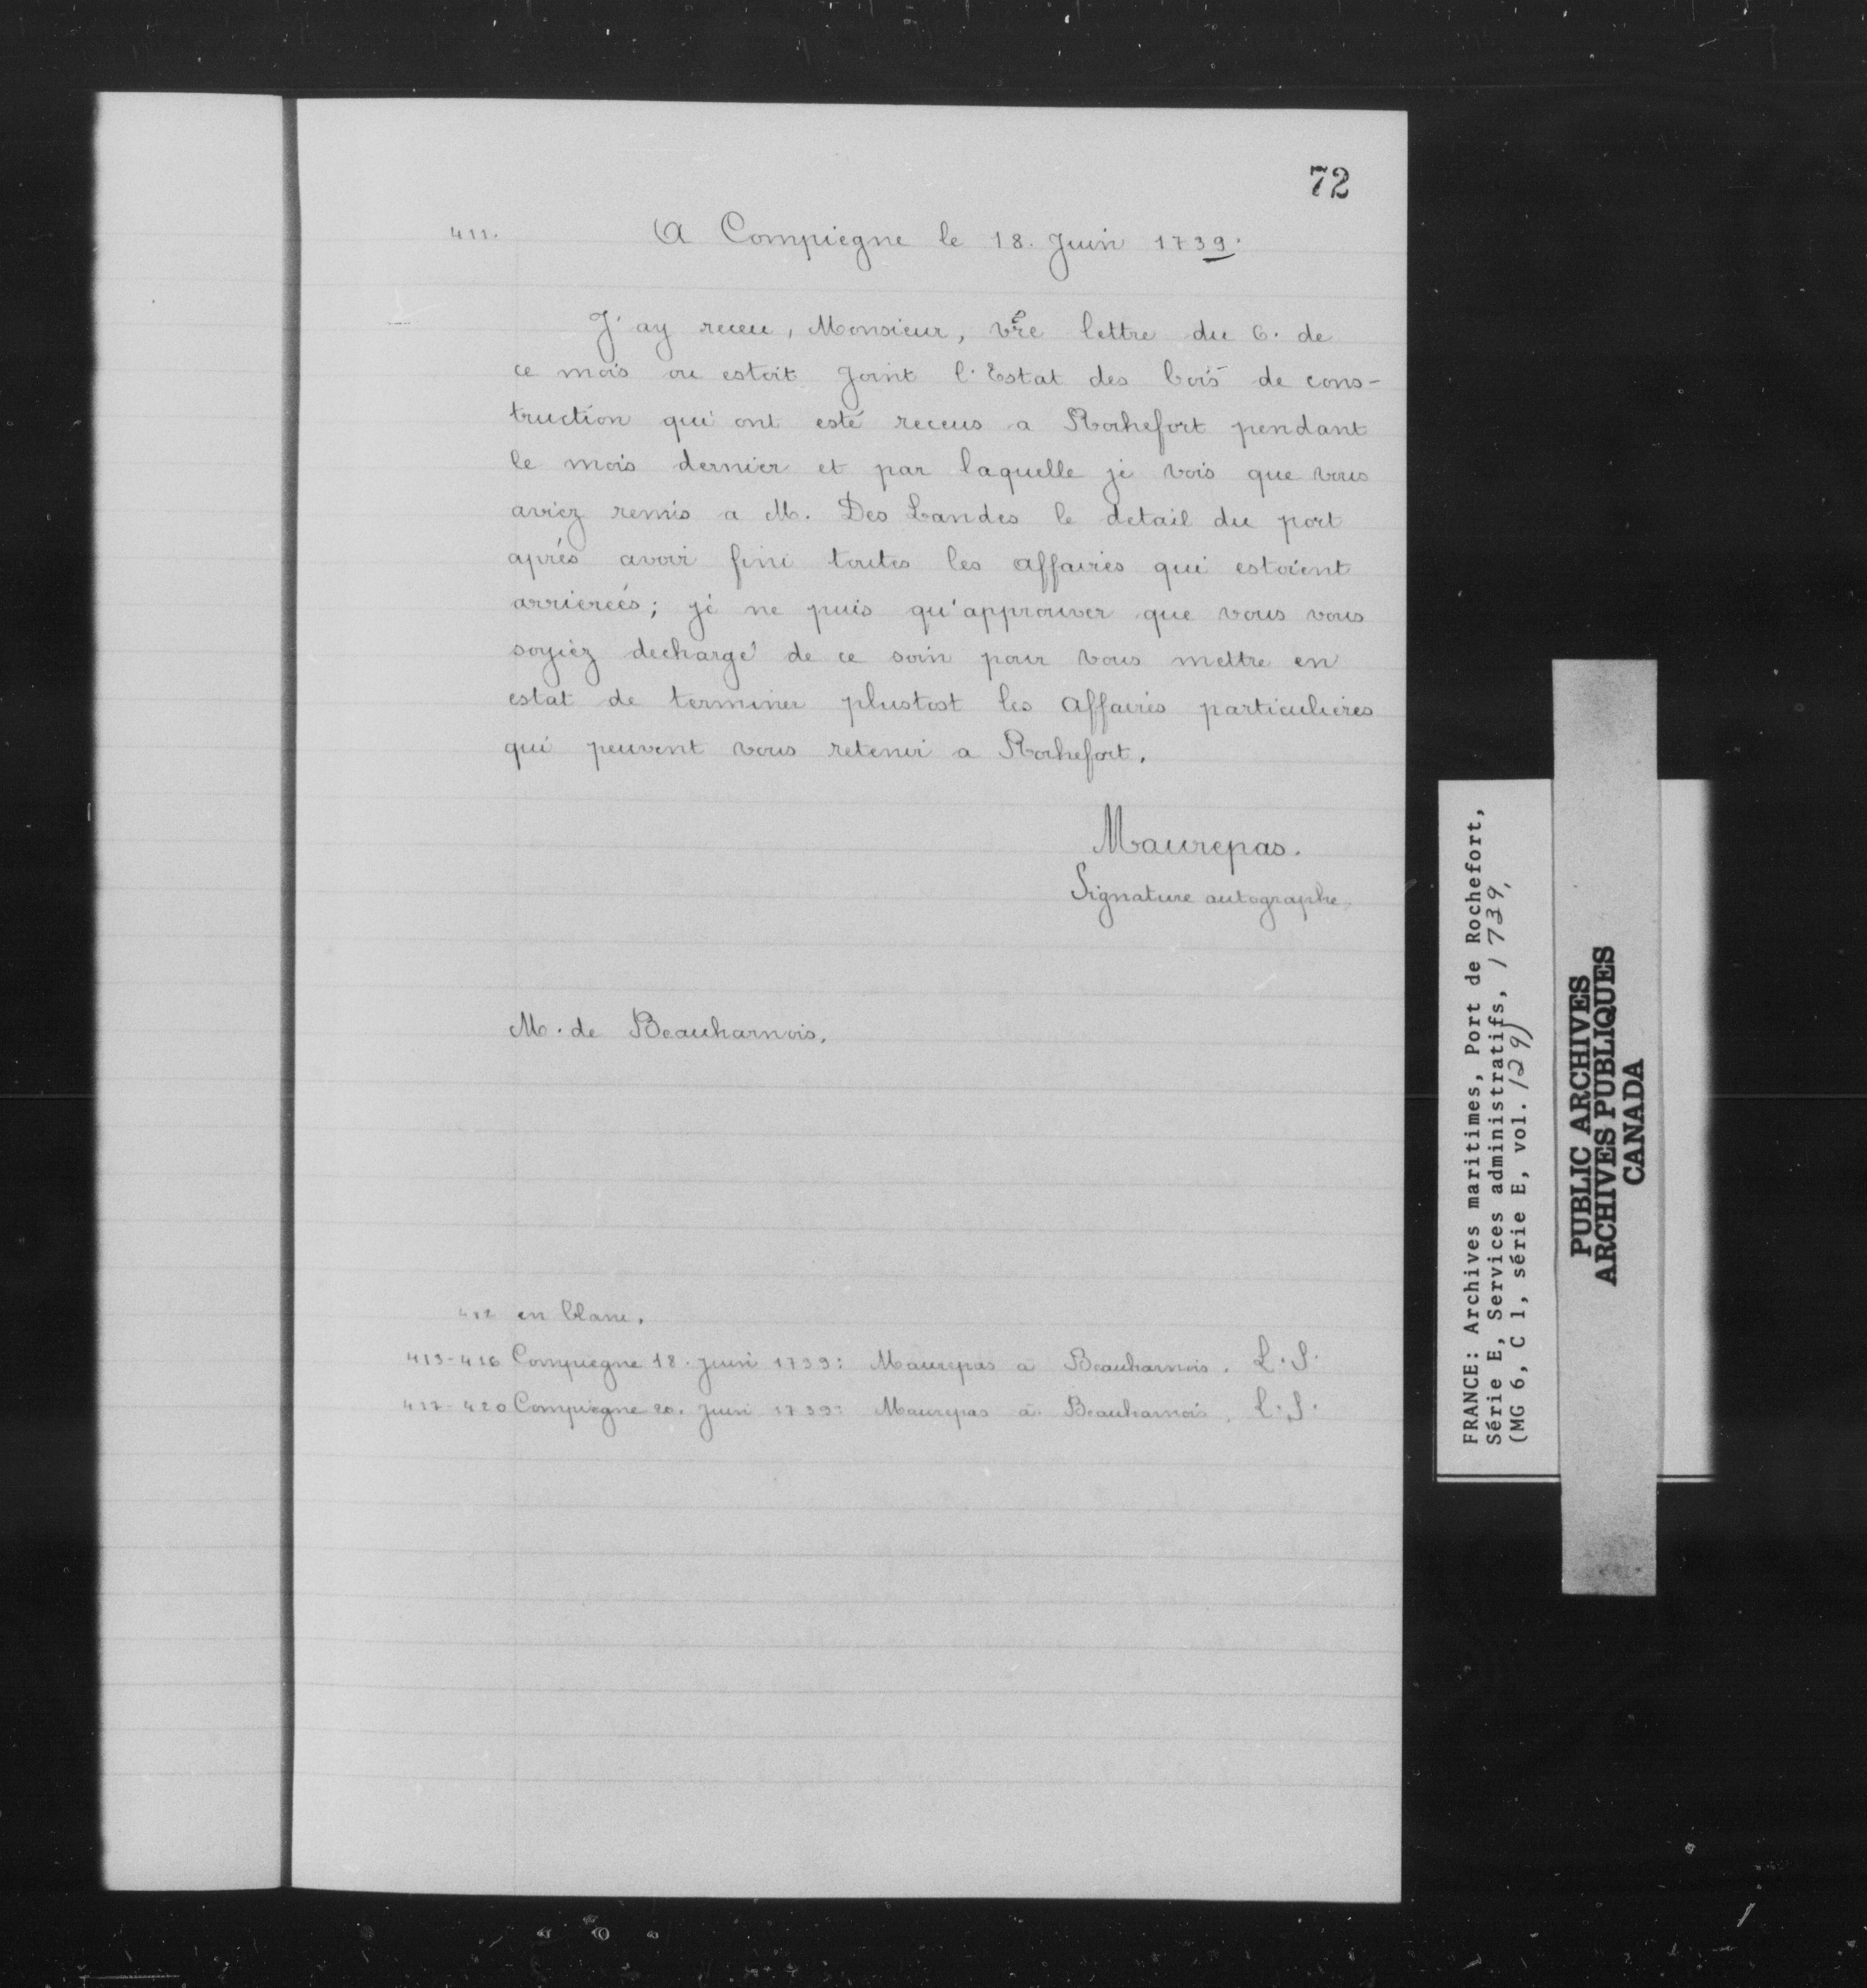 72
411. A Compiegne le 18. Juin 1739.
J'ay receu, Monsieur, vre lettre du 6. de
ce mois ou estoit Joint l'Estat des bois de cons-
truction qui ont esté receus a Rochefort pendant
le mois dernier et par laquelle je vois que vous
aviez remis a M. Des Landes le detail du port
aprés avoir fini toutes les affaires qui estoient
arrierées; je ne puis qu'approuver que vous vous
soyiez dechargé de ce soin pour vous mettre en
estat de terminer plustost les affaires particulieres
qui peuvent vous retenir a Rochefort.
Maurepas.
Signature autographe.
M. de Beauharnois.
412 en blanc.
413-416 Compiegne 18. Juin 1739: Maurepas à Beauharnois. L.S.
417-420 Compiegne 20. Juin 1739: Maurepas à Beauharnois. L.S.
FRANCE: Archives maritimes, Port de Rochefort,
Série E, Services administratifs, 1739,
(MG 6, C 1, série E, vol. 129)
PUBLIC ARCHIVES
ARCHIVES PUBLIQUES
CANADA